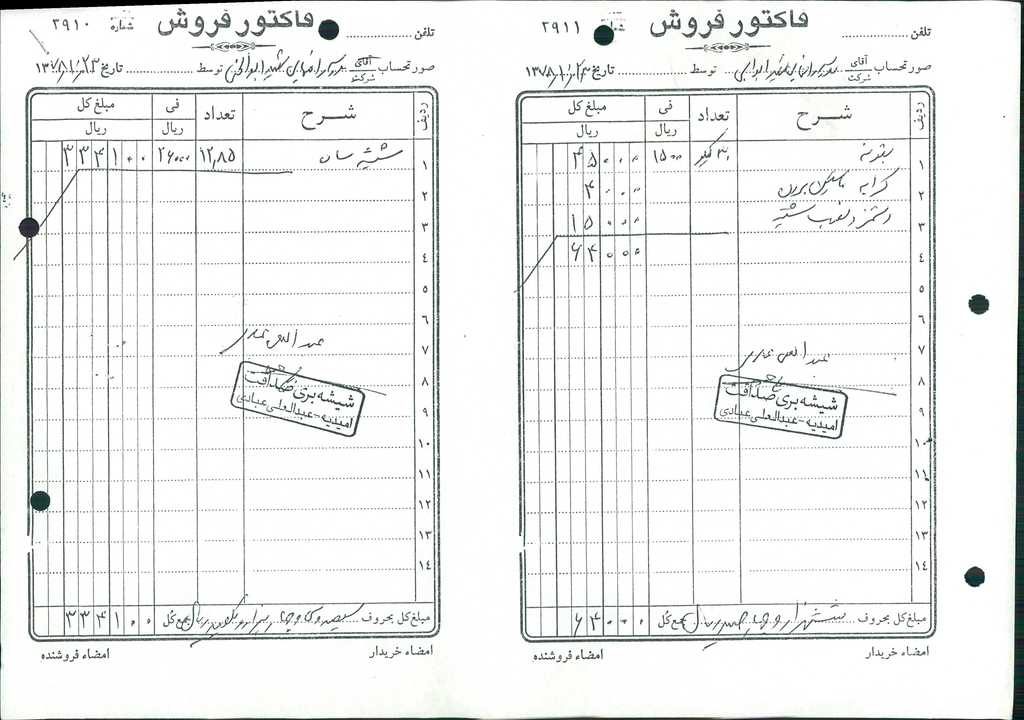 فاکتور فروش
شماره ۲۹۱۱
تلفن
صورتحساب آقای شرکت توسط تاریخ ۱۳۷۸/۱۰/۲۳
ردیف شرح تعداد فی ریال مبلغ کل ریال
۱ بتونه ۳۰ کیلو ۱۵۰۰ ۴۵۰۰۰
۲ کرایه ۴۰۰۰
۳ دستمزد و نصب شیشه ۱۵۰۰۰
۴ ۶۴۰۰۰
۵
۶
۷
۸
۹
۱۰
۱۱
۱۲
۱۳
۱۴
شیشه بری صداقت
امیدیه - عبدالعلی عبادی
مبلغ کل بحروف ریال جمع کل ۶۴۰۰۰
امضاء خریدار امضاء فروشنده
فاکتور فروش
شماره ۲۹۱۰
تلفن
صورتحساب آقای شرکت توسط تاریخ ۱۳۷۸/۱۰/۲۳
ردیف شرح تعداد فی ریال مبلغ کل ریال
۱ شیشه ساده ۱۲,۸۵ ۲۶۰۰۰ ۳۳۴۱۰۰
۲
۳
۴
۵
۶
۷
۸
۹
۱۰
۱۱
۱۲
۱۳
۱۴
شیشه بری صداقت
امیدیه - عبدالعلی عبادی
مبلغ کل بحروف سیصد و سی و چهار هزار و یکصد ریال جمع کل ۳۳۴۱۰۰
امضاء خریدار امضاء فروشنده